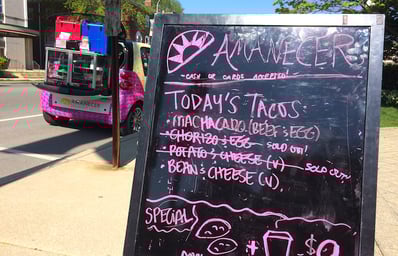 AMANECER
CASH OR CARDS ACCEPTED!
TODAY'S TACOS:
• MACHACADO (BEEF & EGG)
• CHORIZO & EGG SOLD OUT!
• POTATO & CHEESE (V) SOLD OUT!
• BEAN & CHEESE (V)
SPECIAL!
+ $
AMANECER